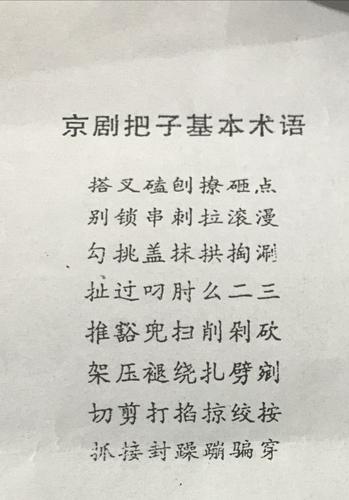 京剧把子基本术语
搭叉磕刨撩砸点
别锁串刺拉滚漫
勾挑盖抹拱掏涮
扯过叨肘么二三
推豁兜扫削剁砍
架压褪绕扎劈剜
切剪打掐掠绞按
抓接封蹿蹦骗穿